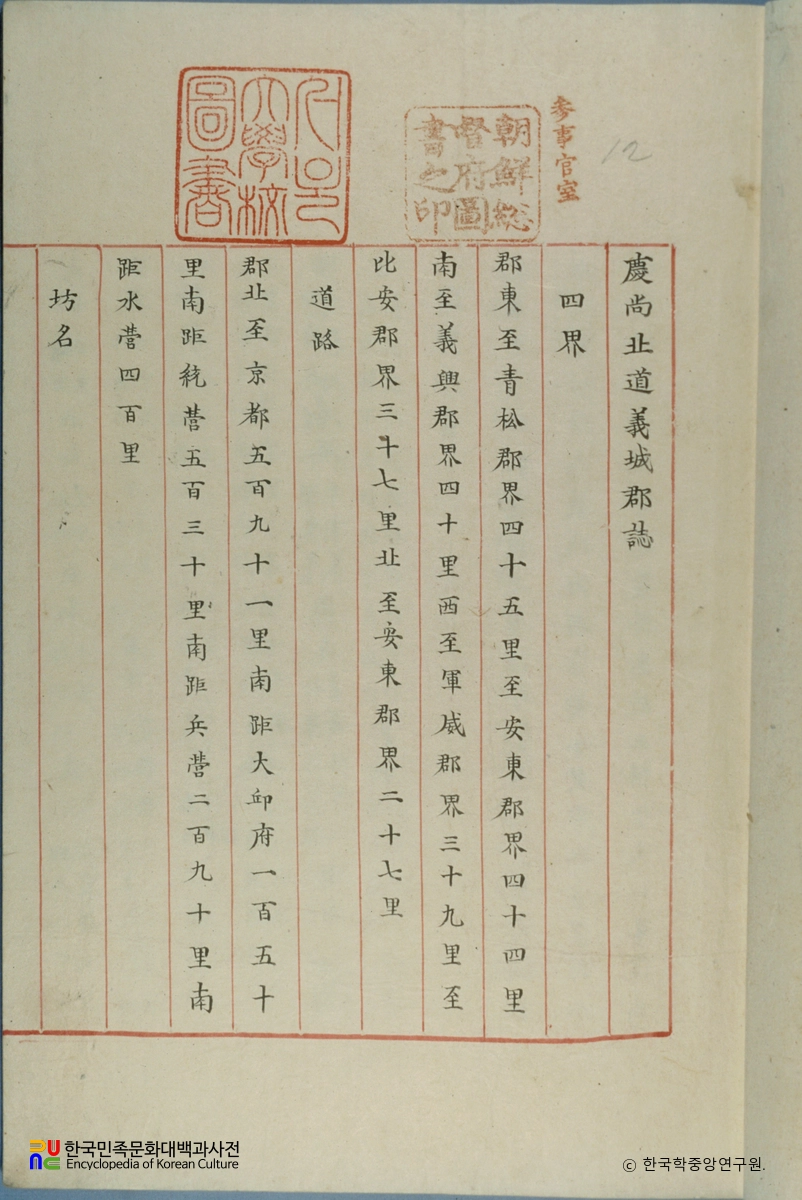 慶尚北道義城郡誌
四界
郡東至青松郡界四十五里至安東郡界四十四里
南至義興郡界四十里西至軍威郡界三十九里至
比安郡界三十七里北至安東郡界二十七里
道路
郡北至京都五百九十一里南距大邱府一百五十
里南距統營五百三十里南距兵營二百九十里南
距水營四百里
坊名
参事官室
12
朝鮮総
督府圖
書之印
大學校
圖書
한국민족문화대백과사전
Encyclopedia of Korean Culture
© 한국학중앙연구원.